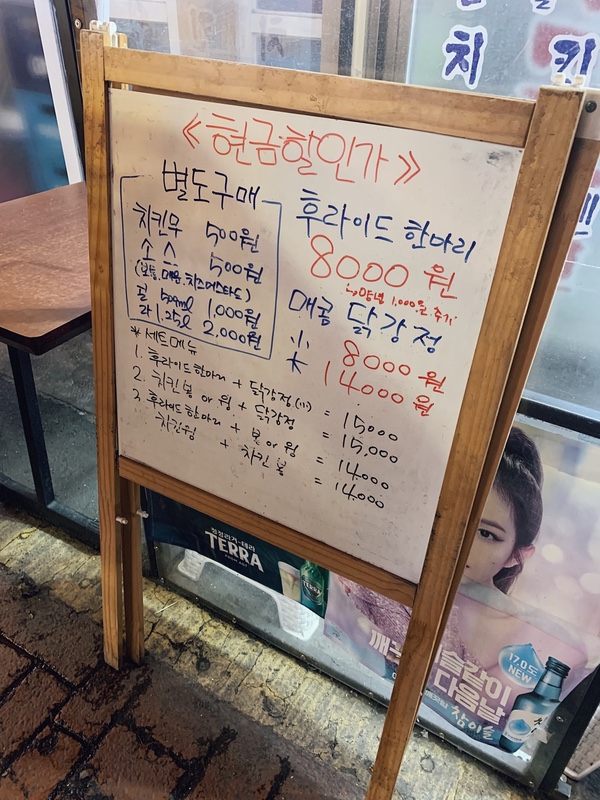 치 킨
<현금할인가>>
별도구매
치킨무 500원
소스 500원
(보통,매콤,치즈머스타드)
콜 500ml 1,000원
라 1.25l 2,000원
후라이드 한마리
8000원
↳양념 1,000원 추가
매콤 닭강정
小 8000원
大 14000원
*세트메뉴
1. 후라이드한마리 + 닭강정(小) = 15000
2. 치킨봉 or 윙 + 닭강정 = 15,000
3. 후라이드한마리 + 봉 or 윙 = 14,000
치킨윙 + 치킨봉 = 14,000
청정라거-테라
TERRA
이슬같이
다음날
17.0도
NEW
참이슬